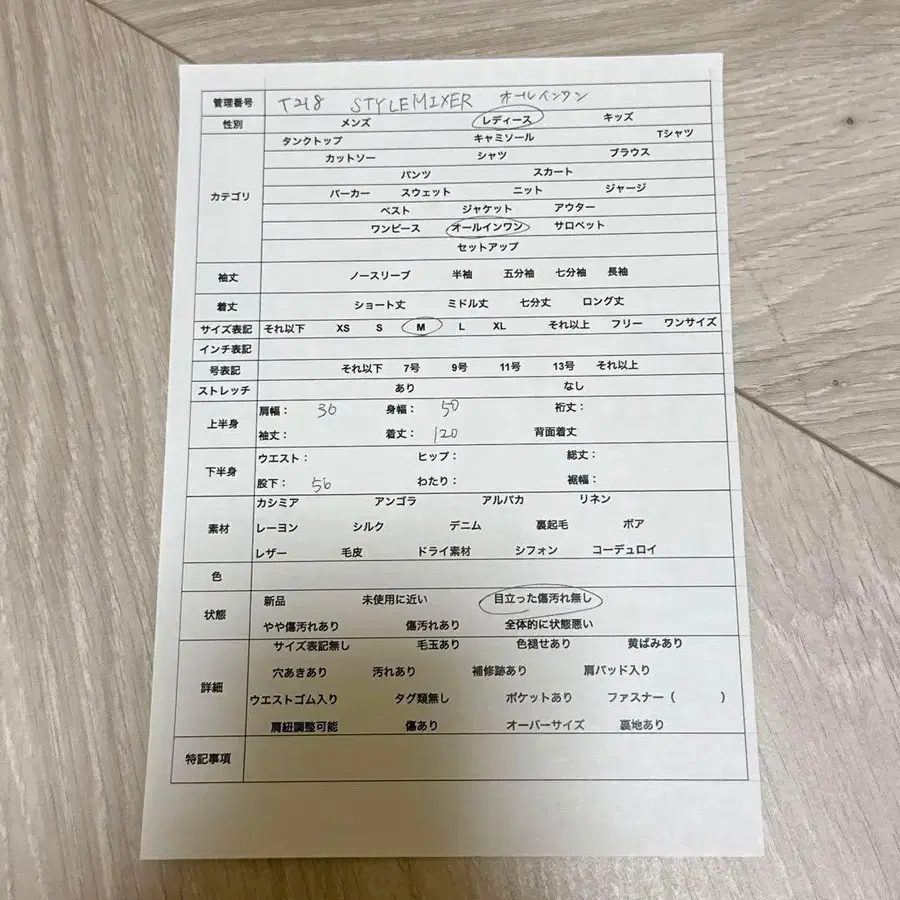 管理番号 T218 STYLEMIXER オールインワン
性別 メンズ レディース キッズ
カテゴリ
タンクトップ キャミソール Tシャツ
カットソー シャツ ブラウス
パンツ スカート
パーカー スウェット ニット ジャージ
ベスト ジャケット アウター
ワンピース オールインワン サロペット
セットアップ
袖丈 ノースリーブ 半袖 五分袖 七分袖 長袖
着丈 ショート丈 ミドル丈 七分丈 ロング丈
サイズ表記 それ以下 XS S M L XL それ以上 フリー ワンサイズ
インチ表記
号表記 それ以下 7号 9号 11号 13号 それ以上
ストレッチ あり なし
上半身
肩幅： 36 身幅： 50 裄丈：
袖丈： 着丈： 120 背面着丈
下半身
ウエスト： ヒップ： 総丈：
股下： 56 わたり： 裾幅：
素材
カシミア アンゴラ アルパカ リネン
レーヨン シルク デニム 裏起毛 ボア
レザー 毛皮 ドライ素材 シフォン コーデュロイ
色
状態
新品 未使用に近い 目立った傷汚れ無し
やや傷汚れあり 傷汚れあり 全体的に状態悪い
詳細
サイズ表記無し 毛玉あり 色褪せあり 黄ばみあり
穴あきあり 汚れあり 補修跡あり 肩パッド入り
ウエストゴム入り タグ類無し ポケットあり ファスナー（ ）
肩紐調整可能 傷あり オーバーサイズ 裏地あり
特記事項